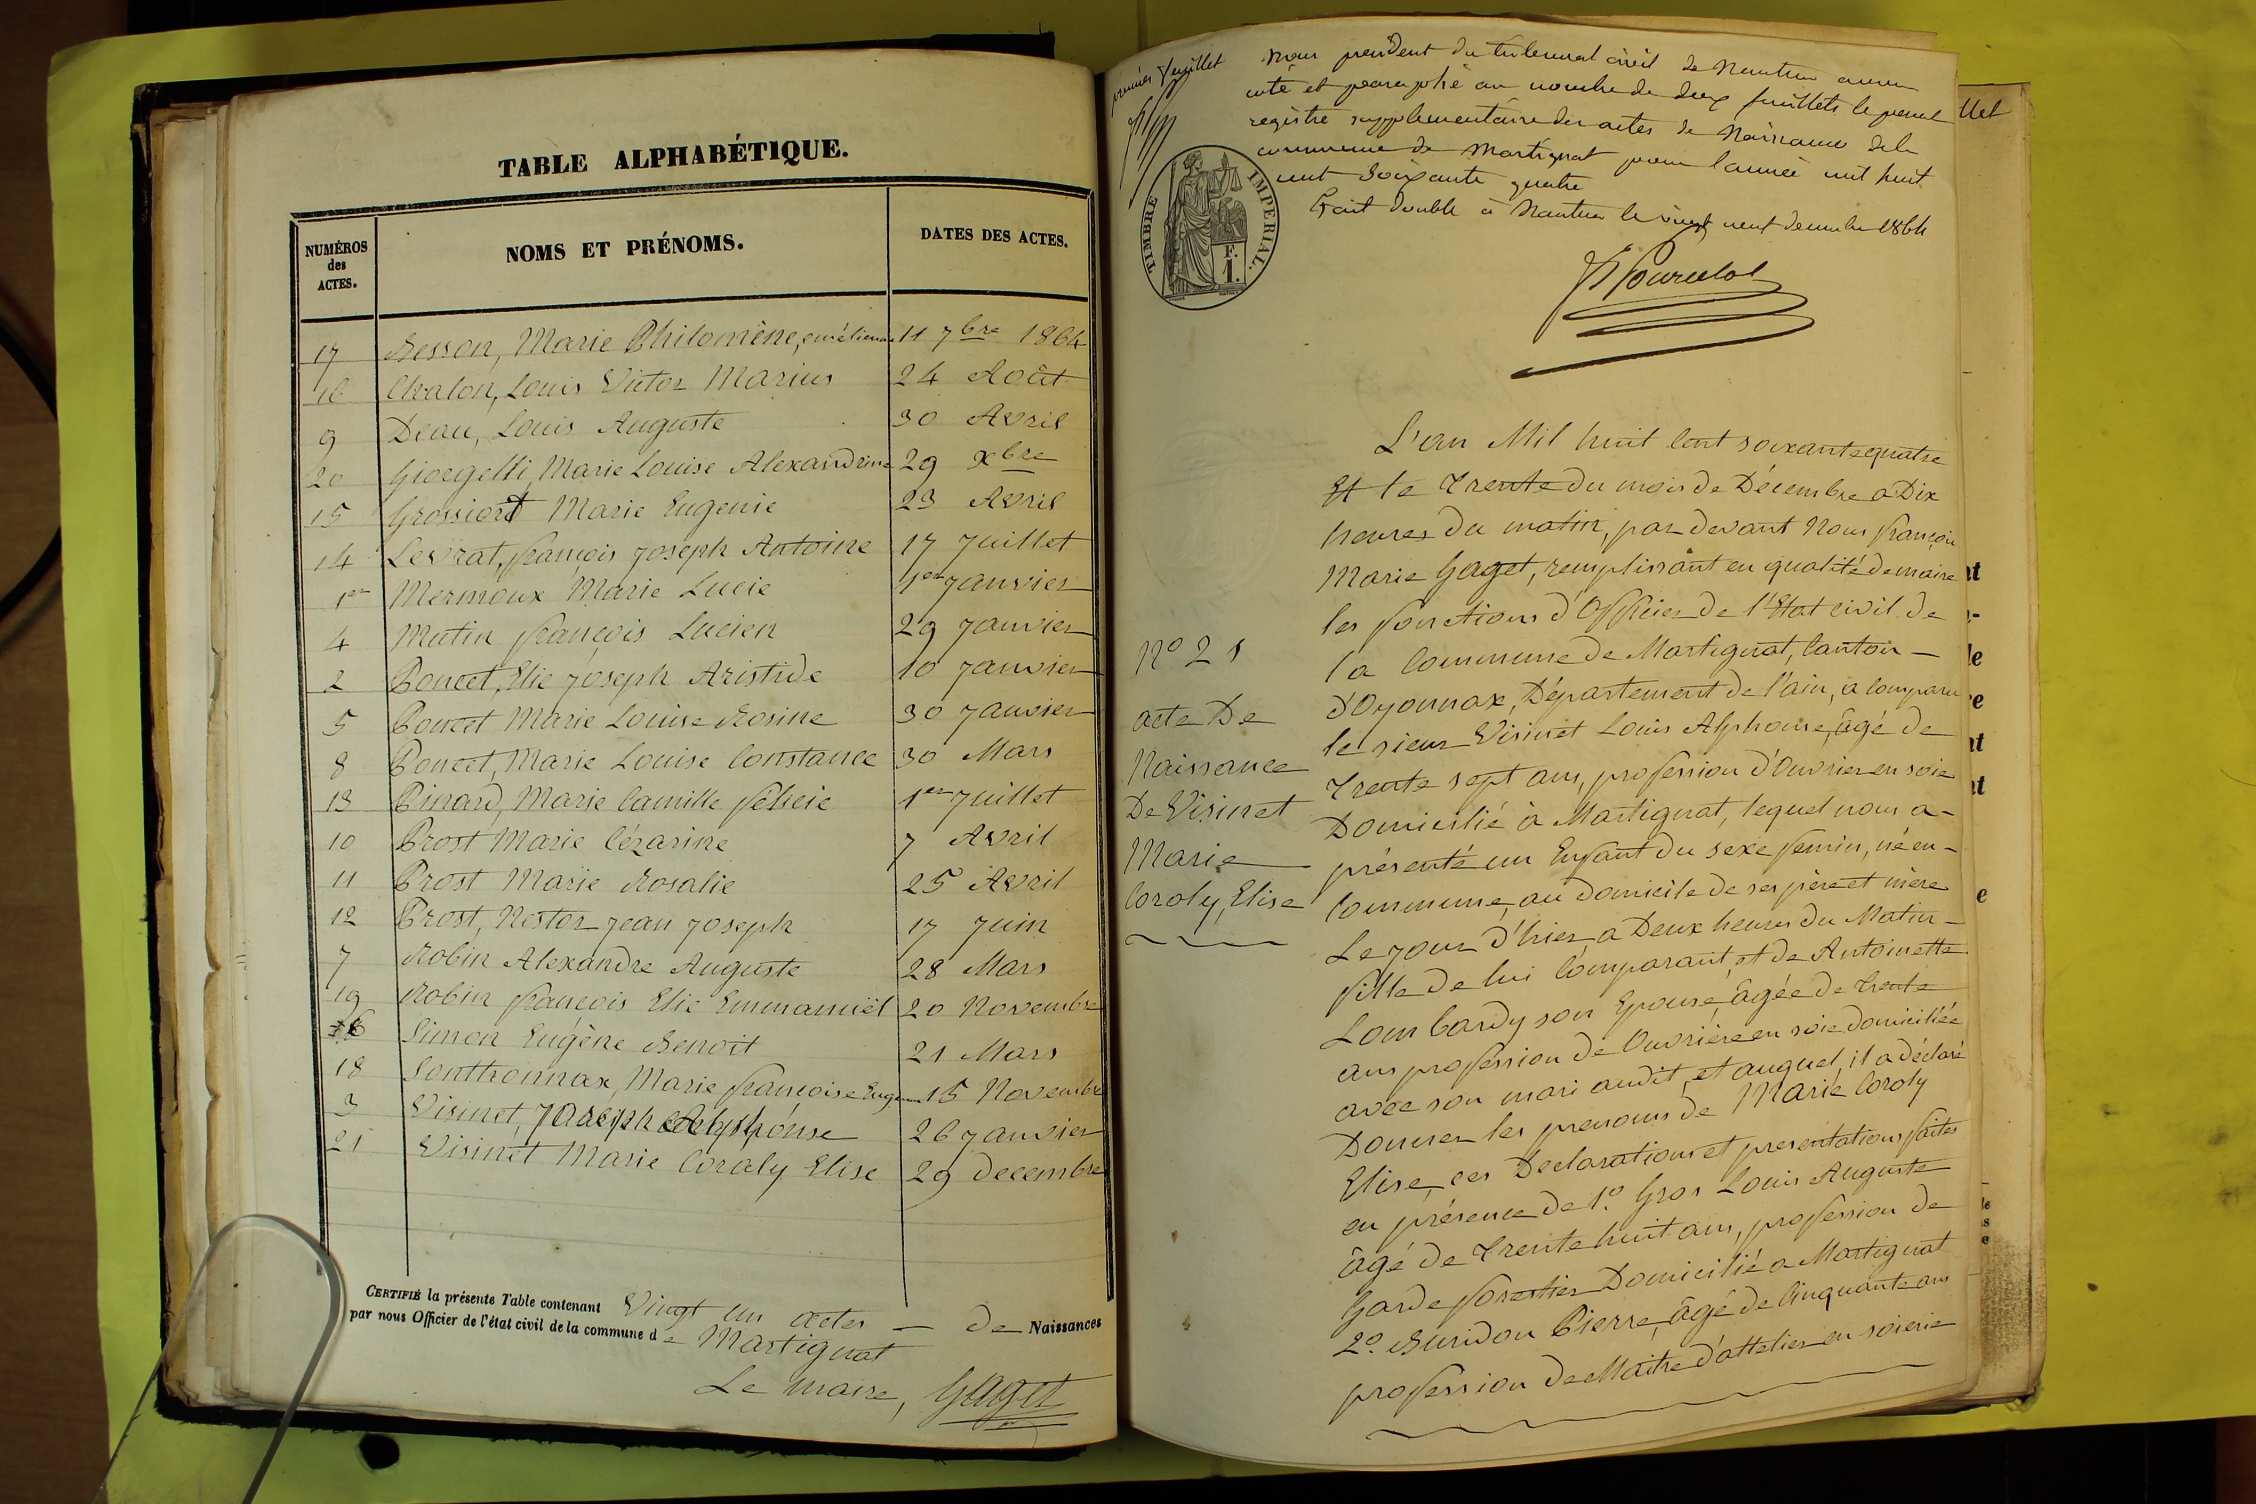 TABLE ALPHABÉTIQUE.
NUMÉROS des ACTES. NOMS ET PRÉNOMS. DATES DES ACTES.
17 Besson, Marie Philomène, 11 7bre 1864
16 Chalon, Louis Victor Marius 24 Août
9 Deau, Louis Auguste 30 Avril
20 Giorgetti, Marie Louise Alexandrine 29 xbre
15 Grossiord Marie Eugenie 23 Avril
14 Levrat, françois Joseph Antoine 17 Juillet
1er Mermoux Marie Lucie 1er Janvier
4 Mutin françois Lucien 29 Janvier
2 Poncet, Elie Joseph Aristide 10 Janvier
5 Poncet Marie Louise Rosine 30 Janvier
8 Poncet, Marie Louise Constance 30 Mars
13 Pinard, Marie Camille félicie 1er Juillet
10 Prost Marie Cézarine 7 Avril
11 Prost Marie Rosalie 25 Avril
12 Prost, Nestor Jean Joseph 17 Juin
7 Robin Alexandre Auguste 28 Mars
19 Robin françois Elie Emmanuël 20 Novembre
6 Simon Eugène Benoit 21 Mars
18 Sonthonnax, Marie françoise 15 Novembre
3 Visinet, Joseph Alphonse 26 Janvier
21 Visinet Marie Coraly Elise 29 decembre
CERTIFIÉ la présente Table contenant Vingt un actes — de Naissances
par nous Officier de l'état civil de la commune de Martignat
Le maire, Gaget
premier feuillet
Nous président du tribunal civil de Nantua avons
coté et paraphé au nombre de deux feuillets le présent
registre supplémentaire des actes de Naissance de la
commune de Martignat pour l'année mil huit
cent soixante quatre
Fait double à Nantua le vingt neuf decembre 1864
TIMBRE IMPERIAL.
F.
1.
L'an Mil huit Cent soixante quatre
Et le Trente du mois de Décembre a Dix
heures du matin, par devant Nous françois
Marie Gaget, remplissant en qualité de maire
les fonctions d'Officier de l'Etat civil de
la Commune de Martignat, Canton —
d'Oyonnax, Département de l'ain, a comparu
le sieur Visinet Louis Alphonse, âgé de
Trente sept ans, profession d'Ouvrier en soie
Domicilié à Martignat, lequel nous a -
présenté un Enfant du sexe feminin, né en -
Commune, au domicile de ses père et mère
Le jour d'hier a Deux heures du Matin -
fille de lui Comparant, et de Antoinette
Lombardy son Epouse, âgée de trente
ans profession de Ouvrière en soie domiciliée
avec son mari audit, et auquel, il a déclaré
Donner les prenoms de Marie Coroly
Elise, ces Declarations et presentations faites
en présence de 1º. Gros Louis Auguste
âgé de Trente huit ans, profession de
Garde forestier Domicilié a Martignat
2º. Buridon Pierre, âgé de Cinquante ans
profession de Maitre d'attelier en soierie
Nº 21
acte De
Naissance
De Visinet
Marie
Coroly, Elise